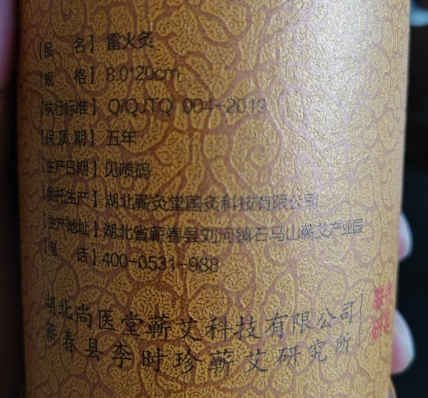 【品 名】雷火灸
【规 格】8.0*20cm
【执行标准】Q/QJTQ 004-2019
【保质期】五年
【生产日期】见喷码
【委托生产】湖北蕲灸堂医灸科技有限公司
【生产地址】湖北省蕲春县刘河镇石马山蕲艾产业园
【电 话】400-0531-988
湖北尚医堂蕲艾科技有限公司
蕲春县李时珍蕲艾研究所